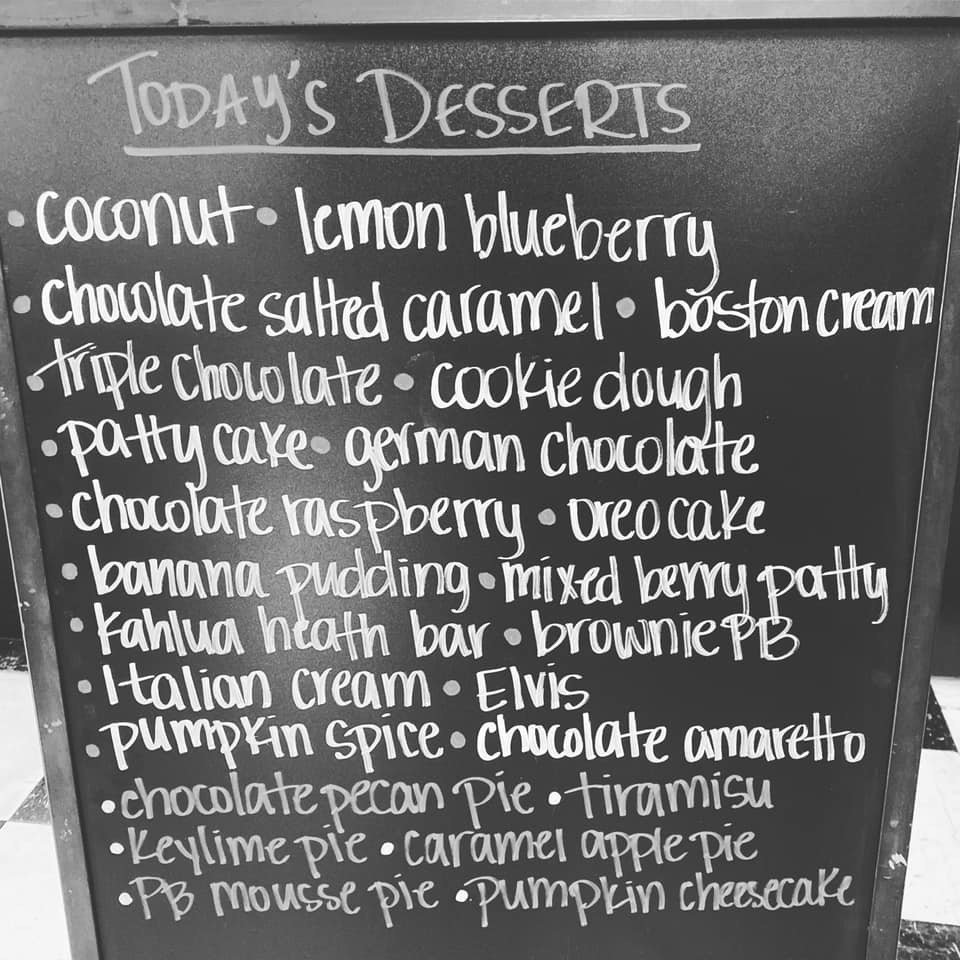 TODAY'S DESSERTS
• coconut • lemon blueberry
• chocolate salted caramel • boston cream
• triple chocolate • cookie dough
• patty cake • german chocolate
• chocolate raspberry • oreo cake
• banana pudding • mixed berry patty
• Kahlua heath bar • brownie PB
• Italian cream • Elvis
• pumpkin spice • chocolate amaretto
• chocolate pecan pie • tiramisu
• Keylime pie • caramel apple pie
• PB mousse pie • pumpkin cheesecake